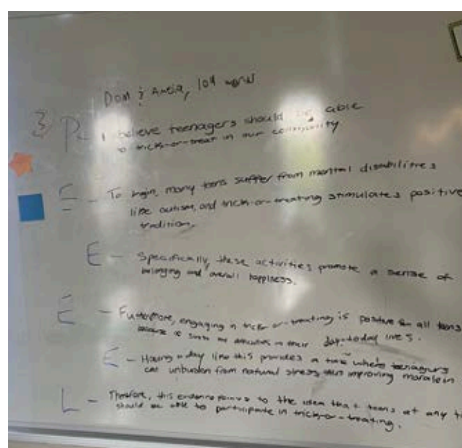 Dom & 104 word
3 P - I believe teenagers should be able
to trick-or-treat in our community
E - To begin, many teens suffer from mental disabilities
like autism, and trick-or-treating stimulates positive
tradition.
E - Specifically, these activities promote a sense of
belonging and overall happiness.
E - Furthermore, engaging in trick-or-treating is positive for all teens
because it in their day-to-day lives.
E - Having a day like this provides a time where teenagers
can unburden from natural stress thus improving morale in
L - Therefore, this evidence points to the idea that teens at any
should be able to participate in trick-or-treating.